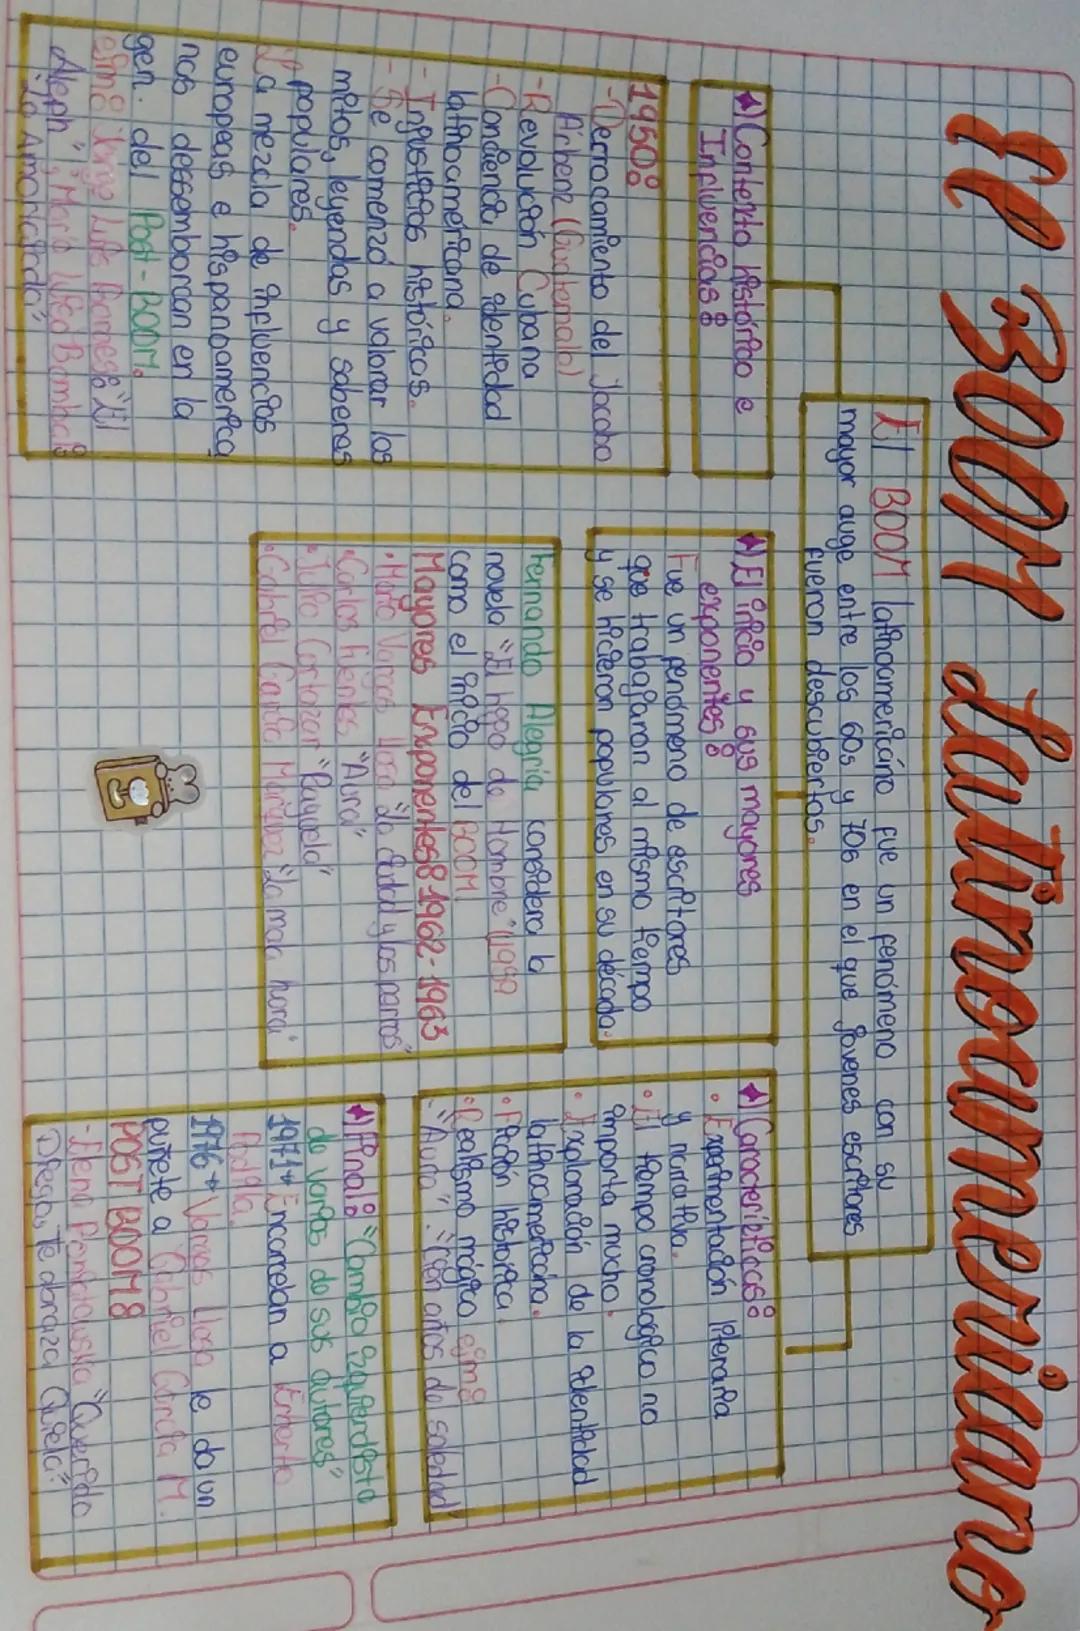 El BOOM Latinoamericano
El BOOM latinoamericano fue un fenómeno con su
mayor auge entre los 60s y 70s en el que jóvenes escritores
fueron descubiertos.
Contexto histórico e
Influencias:
1950:
-Derrocamiento del Jacobo
Árbenz (Guatemala)
-Revolución Cubana
-Conciencia de identidad
latinoamericana.
- Injusticias históricas.
- Se comenzó a valorar los
mitos, leyendas y saberes
populares.
La mezcla de influencias
europeas e hispanoamerica
nas dessemborcan en la
gen. del Post-BOOM.
ejm: Jorge Luis Borges: "El
Aleph", María Luisa Bombal:
"La Amortajada"
El inicio y sus mayores
exponentes:
Fue un fenómeno de escritores
que trabajaron al mismo tiempo
y se hicieron populares en su década.
Fernando Alegría considera la
novela "El hijo de Hombre" (1959
como el inicio del BOOM
Mayores Exponentes: 1962-1963
• Mario Vargas Llosa "La ciudad y los parros"
• Carlos Fuentes "Aura"
• Julio Cortázar "Rayuela"
• Gabriel García Márquez "La mala hora"
Características:
• Experimentación literaria
y narrativa.
• El tiempo cronológico no
importa mucho.
• Exploración de la identidad
latinoamericana.
• Ficción histórica.
• Realismo mágico ejm:
- "Aura". "Cien años de soledad"
Final: "Cambio izquierdista
de varios de sus autores"
1971→ Encarcelan a Emberto
Padilla.
1976→ Vargas Llosa le da un
puñete a Gabriel García M.
POST BOOM:
-Elena Poniatowska "Querido
Diego, Te abraza Quiela"